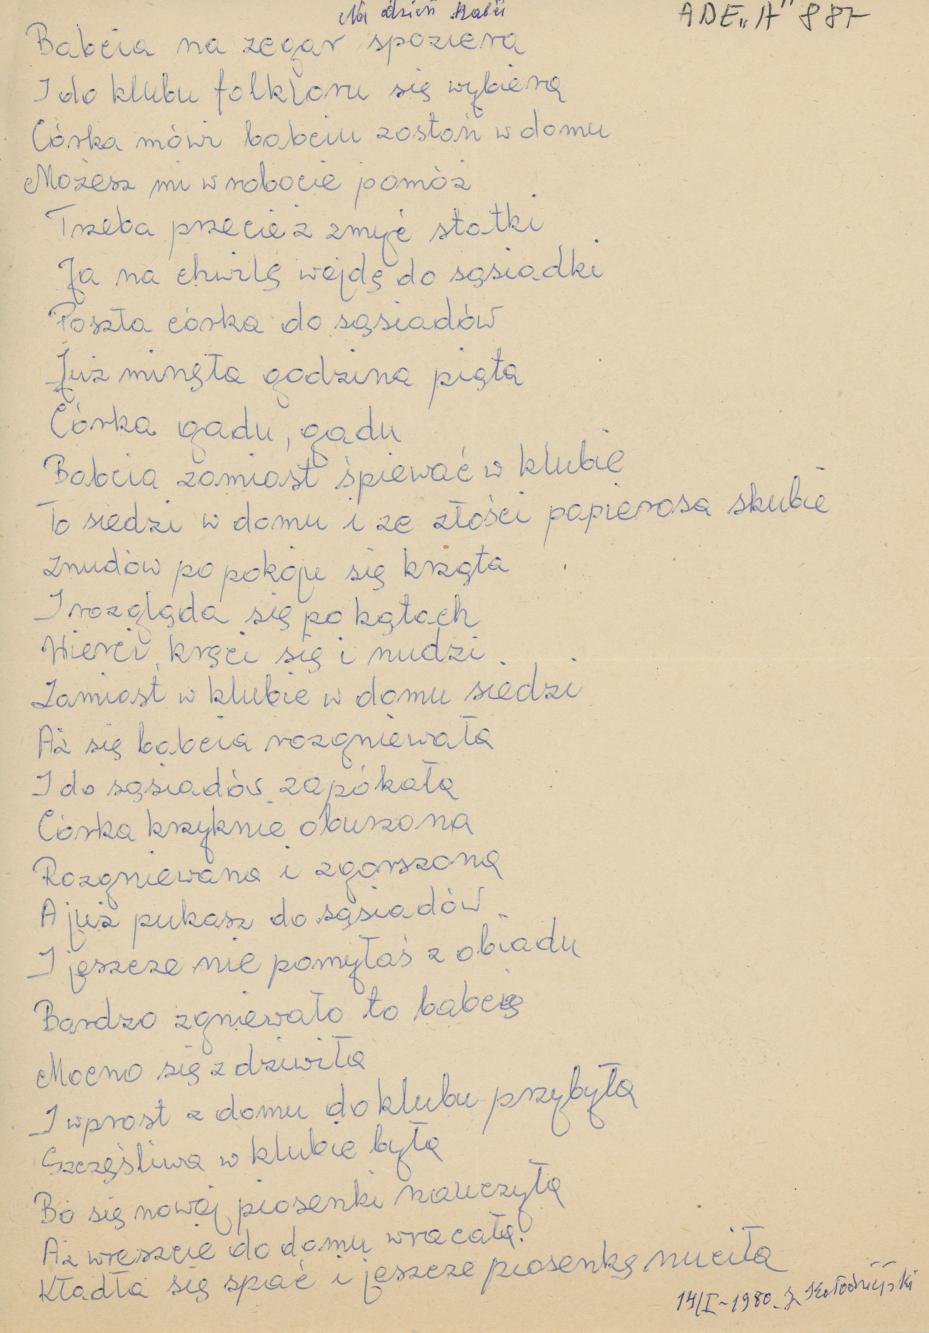 Na dzień Babci
ADE „A" 887
Babcia na zegar spoziera
I do klubu folkloru się wybiera
Córka mówi babciu zostań w domu
Możesz mi w robocie pomóż
Trzeba przecież zmyć statki
Ja na chwilę wejdę do sąsiadki
Poszła córka do sąsiadów
Już minęła godzina piąta
Córka gadu, gadu
Babcia zamiast śpiewać w klubie
To siedzi w domu i ze złości papierosa skubie
Znudów po pokoju się krząta
I rozgląda się po kątach
Wierci, kręci się i nudzi
Zamiast w klubie w domu siedzi
Aż się babcia rozgniewała
I do sąsiadów zapókała
Córka krzyknie oburzona
Rozgniewana i zgorszoną
A już pukasz do sąsiadów
I jeszcze nie pomyłaś z obiadu
Bardzo zgniewało to babcię
Mocno się zdziwiła
I wprost z domu do klubu przybyła
Szczęśliwa w klubie była
Bo się nowej piosenki nauczyła
Aż wreszcie do domu wracała.
Kładła się spać i jeszcze piosenkę nuciła
14/I-1980.